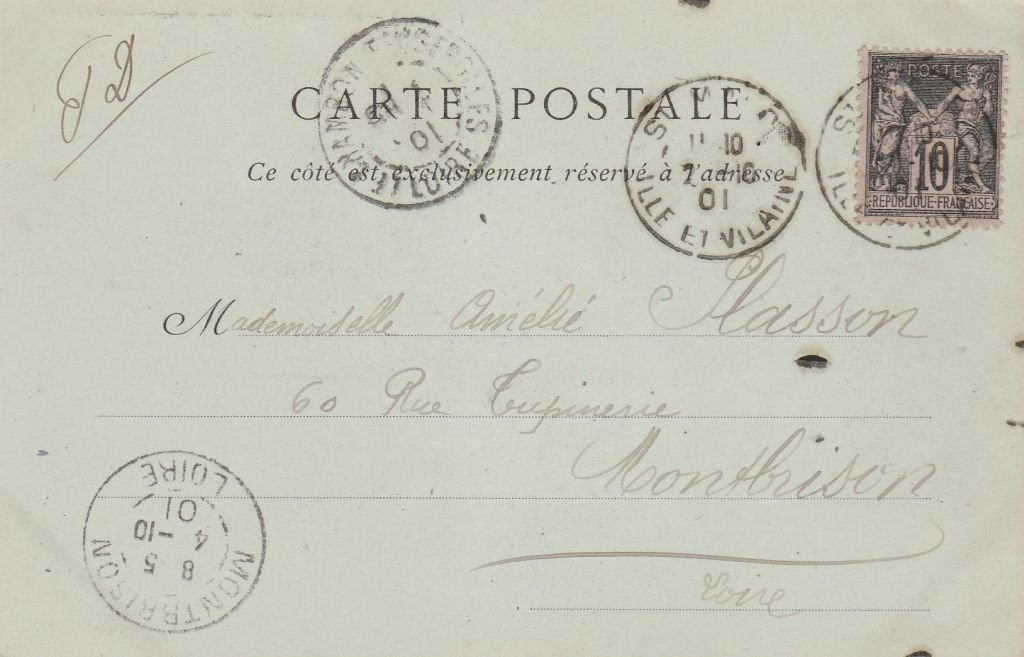 J D
CARTE POSTALE
Ce côté est exclusivement réservé à l'adresse
POSTE
10
REPUBLIQUE FRANÇAISE
ILLE ET VILAINE
01
LE CHAMBON FEUGEROLLES
LOIRE
01
Mademoiselle Amélie Plasson
60 Rue Tupinerie
Montbrison
Loire
MONTBRISON
8 5
4 -10
01
LOIRE